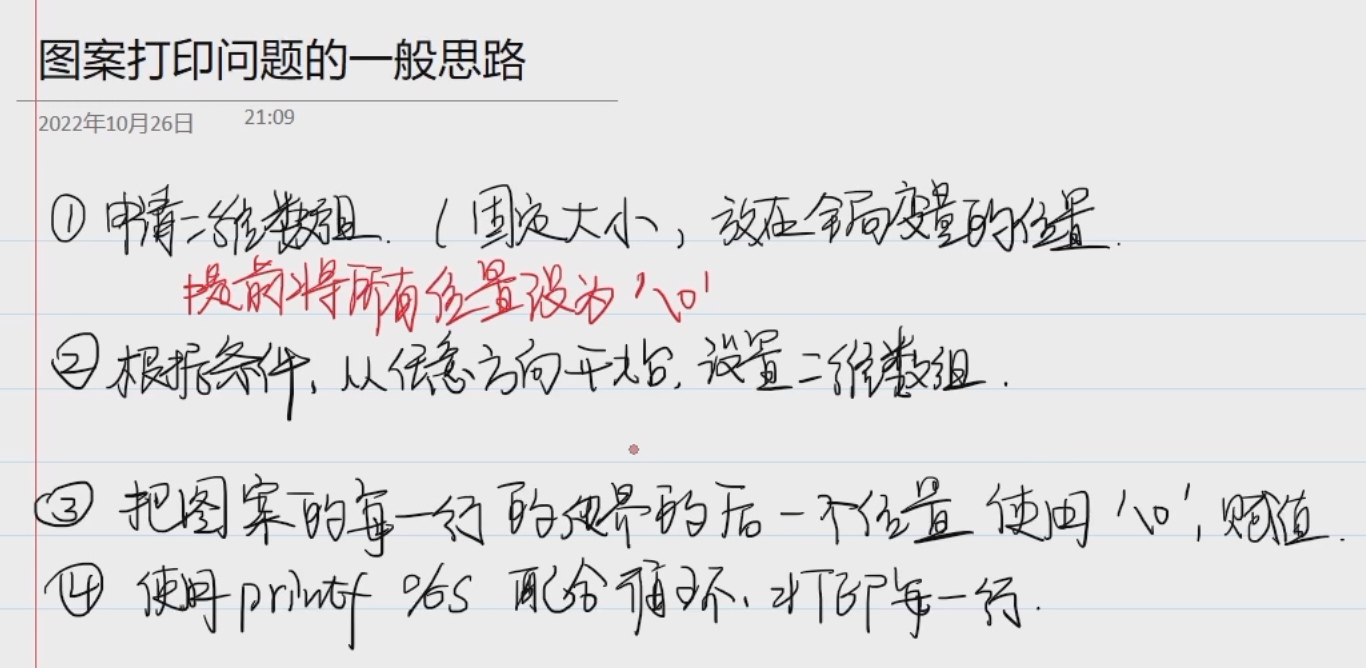 图案打印问题的一般思路
2022年10月26日 21:09
① 申请二维数组. (固定大小, 放在全局变量的位置.
提前将所有位置设为'\0'
② 根据条件, 从任意方向开始, 设置二维数组.
③ 把图案的每一行的边界的后一个位置 使用'\0', 赋值.
④ 使用printf %s 配合循环, 打印每一行.